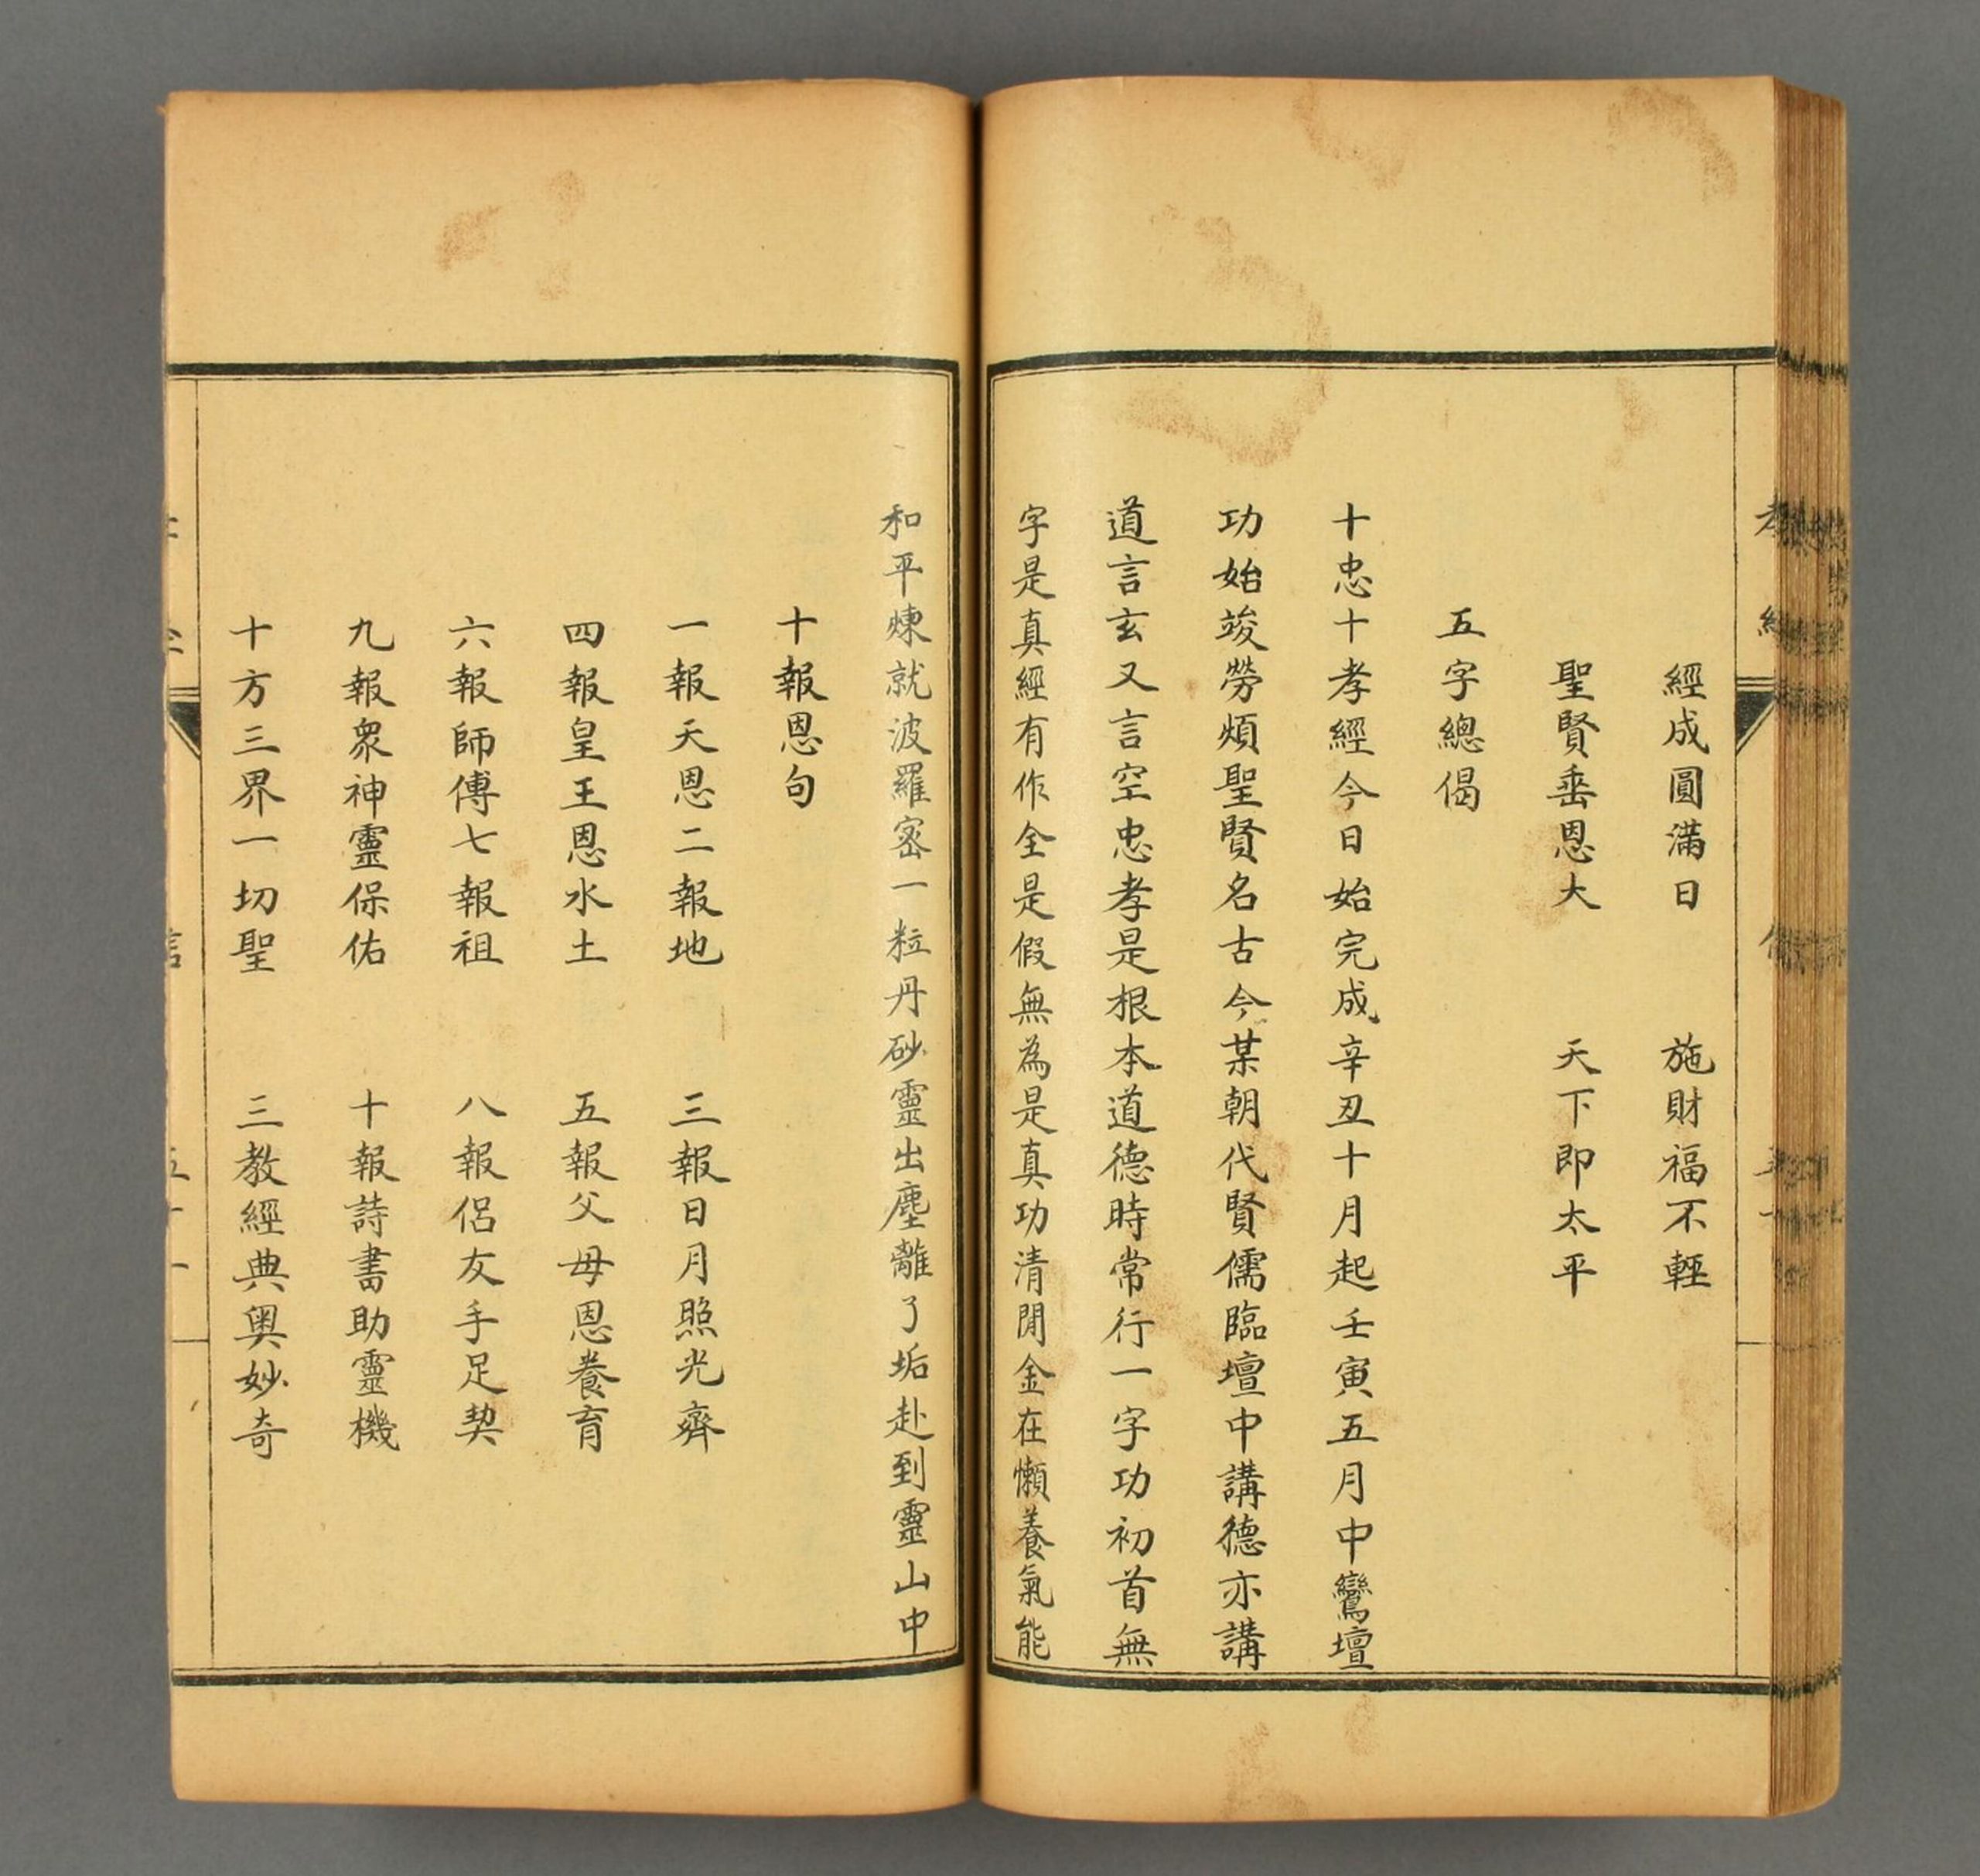 經成圓滿日　施財福不輕
聖賢垂恩大　天下即太平
五字總偈
十忠十孝經今日始完成辛丑十月起壬寅五月中鸞壇
功始竣勞煩聖賢名古今某朝代賢儒臨壇中講德亦講
道言玄又言空忠孝是根本道德時常行一字功初首無
字是真經有作全是假無為是真功清閒金在懶養氣能
和平煉就波羅密一粒丹砂靈出塵離了垢赴到靈山中
十報恩句
一報天恩二報地　三報日月照光齊
四報皇王恩水土　五報父母恩養育
六報師傅七報祖　八報侶友手足契
九報眾神靈保佑　十報詩書助靈機
十方三界一切聖　三教經典奧妙奇